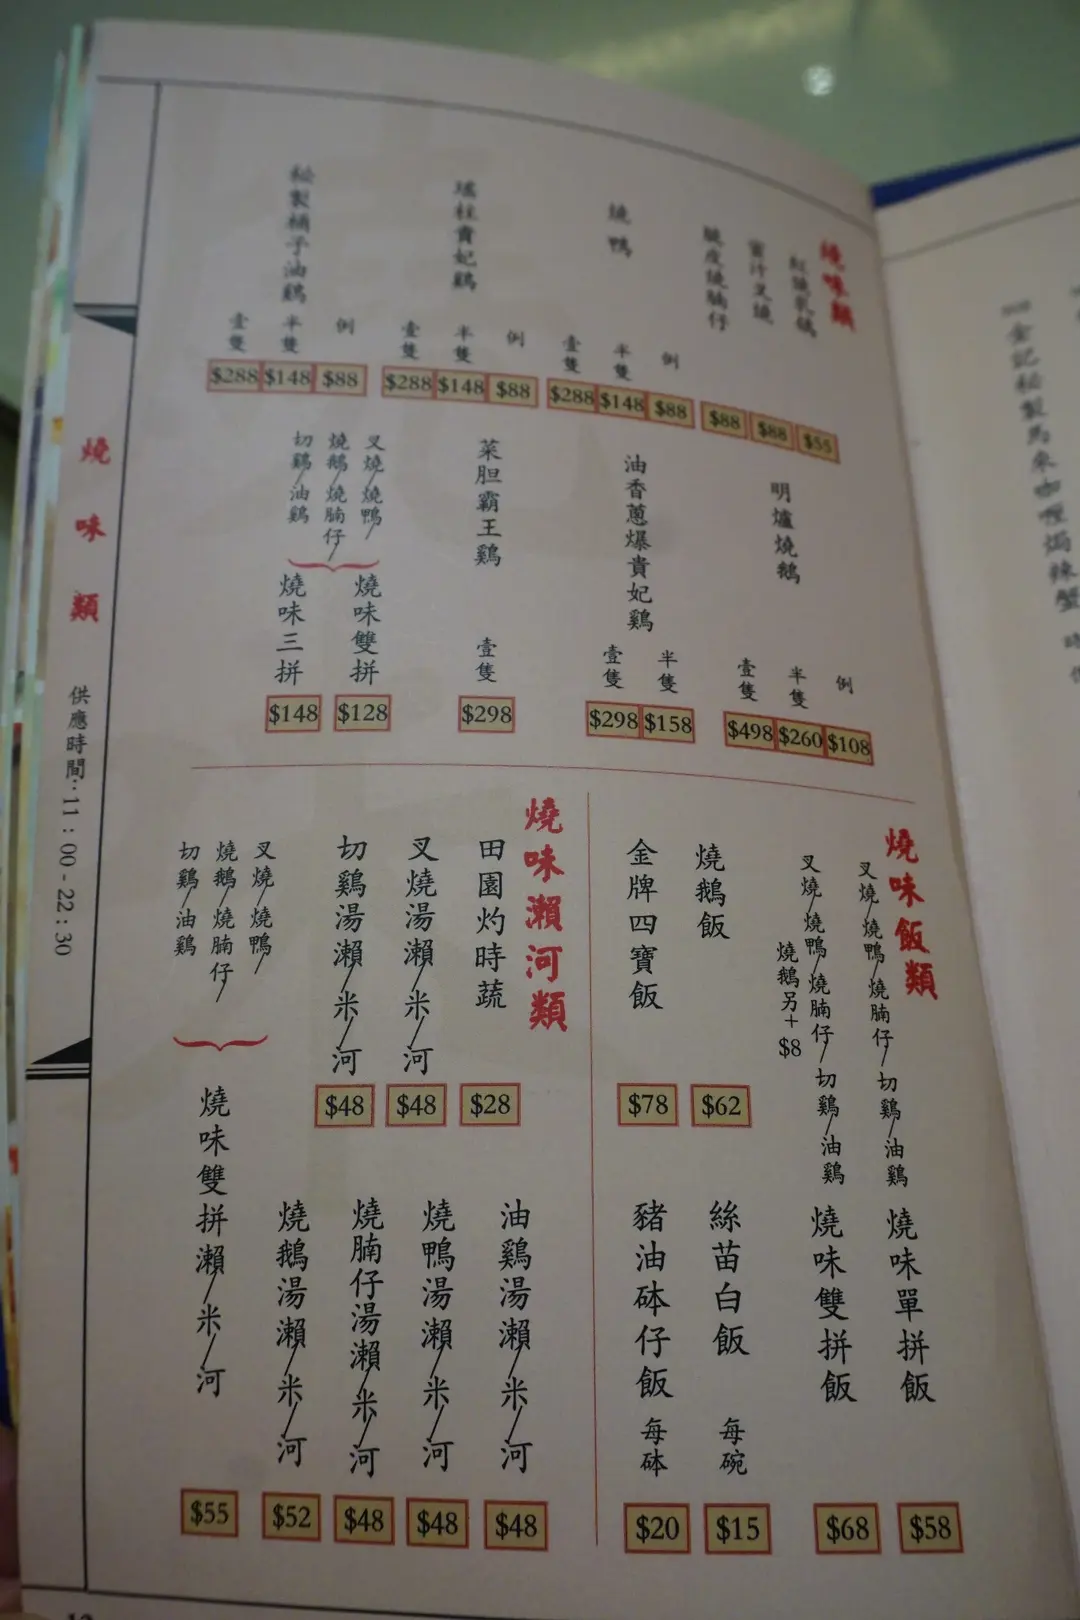 燒味類
紅燒乳鴿
$55
蜜汁叉燒
$88
脆皮燒腩仔
$88
燒鴨
例 $88
半隻 $148
壹隻 $288
瑤柱貴妃鷄
例 $88
半隻 $148
壹隻 $288
秘製桶子油鷄
例 $88
半隻 $148
壹隻 $288
明爐燒鵝
例 $108
半隻 $260
壹隻 $498
油香蔥爆貴妃鷄
半隻 $158
壹隻 $298
菜胆霸王鷄
壹隻 $298
叉燒/燒鴨/
燒鵝/燒腩仔/
切鷄/油鷄
燒味雙拼
$128
燒味三拼
$148
燒味飯類
叉燒/燒鴨/燒腩仔/切鷄/油鷄
燒味單拼飯
$58
叉燒/燒鴨/燒腩仔/切鷄/油鷄
燒鵝另+$8
燒味雙拼飯
$68
燒鵝飯
$62
金牌四寶飯
$78
絲苗白飯 每碗
$15
豬油砵仔飯 每砵
$20
燒味瀨河類
田園灼時蔬
$28
叉燒湯瀨/米/河
$48
切鷄湯瀨/米/河
$48
油鷄湯瀨/米/河
$48
燒鴨湯瀨/米/河
$48
燒腩仔湯瀨/米/河
$48
燒鵝湯瀨/米/河
$52
叉燒/燒鴨/
燒鵝/燒腩仔/
切鷄/油鷄
燒味雙拼瀨/米/河
$55
燒味類
供應時間:11:00-22:30
金記秘製馬來咖喱焗辣蟹
時